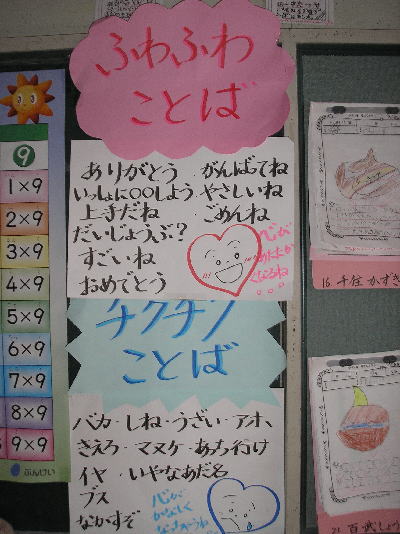 ふわふわ
ことば
ありがとう がんばってね
いっしょに〇〇しよう やさしいね
上手だね ごめんね
だいじょうぶ?
すごいね
おめでとう
心が
あたたか
くなるね
チクチク
ことば
バカ・しね・うざい・アホ、
きえろ・マヌケ・あっち行け
イヤ・いやなあだ名
ブス
なかすぞ
心が
かなしく
なっちゃうね
9
1×9
2×9
3×9
4×9
5×9
6×9
7×9
8×9
9×9
ぶんけい
16. 千住 かずき
21. 百武 しょう